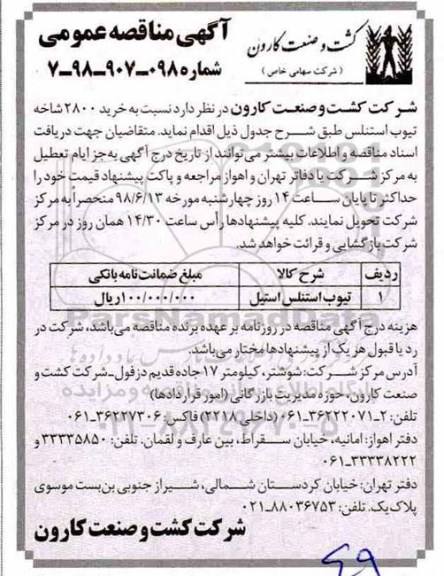 کشت و صنعت کارون
( شرکت سهامی خاص )
آگهی مناقصه عمومی
شماره ۰۹۸-۹۰۷-۹۸-۷
شرکت کشت و صنعت کارون در نظر دارد نسبت به خرید ۲۸۰۰ شاخه
تیوب استنلس طبق شرح جدول ذیل اقدام نماید. متقاضیان جهت دریافت
اسناد مناقصه و اطلاعات بیشتر می‌توانند از تاریخ درج آگهی به‌جز ایام تعطیل
به مرکز شرکت یا دفاتر تهران و اهواز مراجعه و پاکت پیشنهاد قیمت خود را
حداکثر تا پایان ساعت ۱۴ روز چهارشنبه مورخه ۹۸/۶/۱۳ منحصراً به مرکز
شرکت تحویل نمایند. کلیه پیشنهادها رأس ساعت ۱۴/۳۰ همان روز در مرکز
شرکت بازگشایی و قرائت خواهد شد.
ردیف شرح کالا مبلغ ضمانت‌نامه بانکی
۱ تیوب استنلس استیل ۱۰۰/۰۰۰/۰۰۰ ریال
هزینه درج آگهی مناقصه در روزنامه بر عهده برنده مناقصه می‌باشد، شرکت در
رد یا قبول هر یک از پیشنهادها مختار می‌باشد.
آدرس مرکز شرکت: شوشتر، کیلومتر ۱۷ جاده قدیم دزفول-شرکت کشت و
صنعت کارون، حوزه مدیریت بازرگانی (امور قراردادها)
تلفن: ۲-۳۶۲۲۲۰۷۱-۰۶۱ (داخلی ۲۲۱۸) فاکس: ۳۶۲۲۷۳۰۶-۰۶۱
دفتر اهواز: امانیه، خیابان سقراط، بین عارف و لقمان. تلفن: ۳۳۳۳۵۸۵۰ و
۳۳۳۳۸۲۲۲-۰۶۱
دفتر تهران: خیابان کردستان شمالی، شیراز جنوبی بن‌بست موسوی
پلاک یک. تلفن: ۸۸۰۳۶۷۵۳-۰۲۱
شرکت کشت و صنعت کارون
ParsNamadData
۰۲۱-۸۸۳۴۹۶۷۰-۵